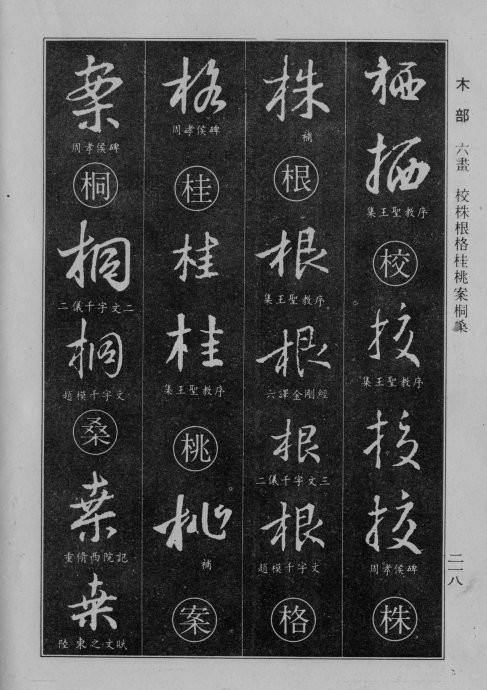 木部 六畫 校株根格桂桃案桐桑
二一八
栖
栖
集王聖教序
校
校
集王聖教序
校
校
周孝侯碑
株
株
補
根
根
集王聖教序
根
六譯金剛經
根
二儀千字文三
根
趙模千字文
格
格
周孝侯碑
桂
桂
桂
集王聖教序
桃
桃
補
案
案
周孝侯碑
桐
桐
二儀千字文二
桐
趙模千字文
桑
桒
重脩西院記
桒
陸柬之文賦